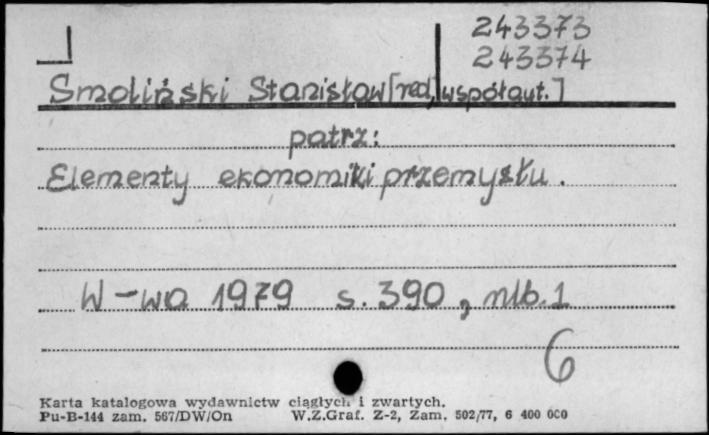 243373
243374
Smoliński Stanisław [red, współaut.]
patrz:
Elementy ekonomiki przemysłu.
W-wa 1979 s. 390, nlb. 1
6
Karta katalogowa wydawnictw ciągłych i zwartych.
Pu-B-144 zam. 567/DW/On W.Z.Graf. Z-2, Zam. 502/77, 6 400 000